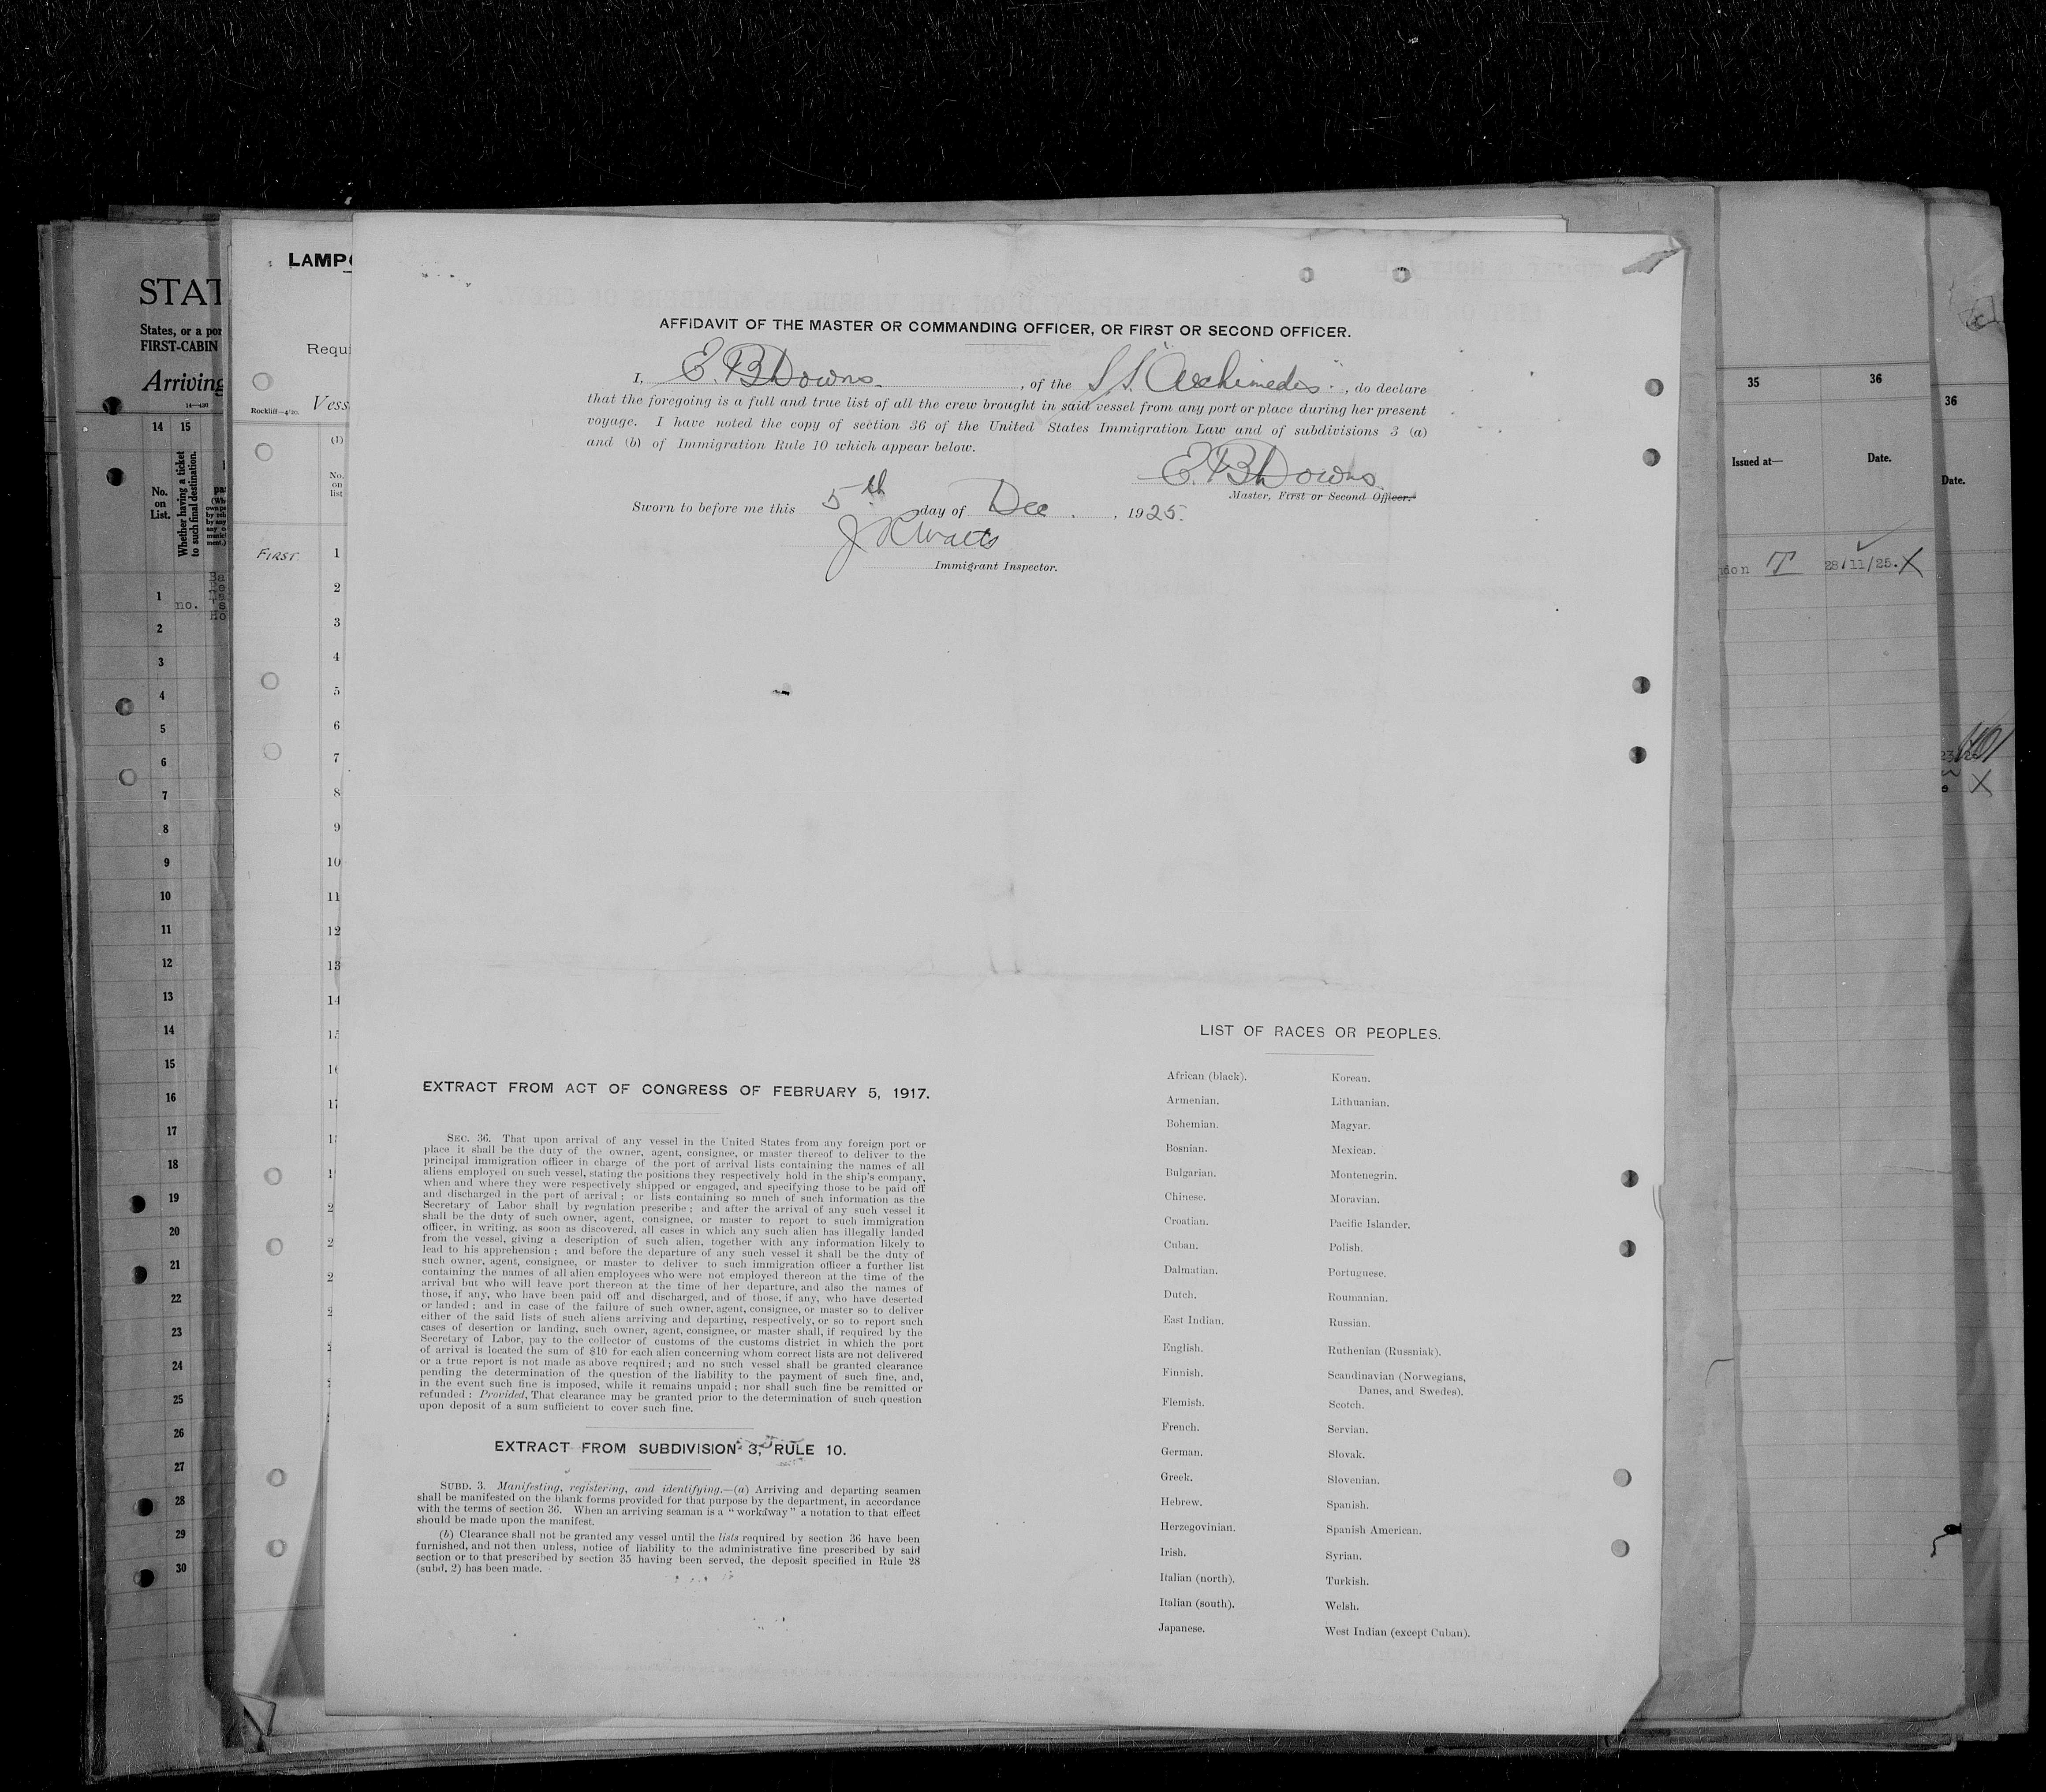 AFFIDAVIT OF THE MASTER OR COMMANDING OFFICER, OR FIRST OR SECOND OFFICER.
I, E. B. Downs , of the S.S. "Archimedes" , do declare
that the foregoing is a full and true list of all the crew brought in said vessel from any port or place during her present
voyage. I have noted the copy of section 36 of the United States Immigration Law and of subdivisions 3 (a)
and (b) of Immigration Rule 10 which appear below.
E. B. Downs
Master, First or Second Officer.
Sworn to before me this 5th day of Dec , 1925.
Immigrant Inspector.
EXTRACT FROM ACT OF CONGRESS OF FEBRUARY 5, 1917.
SEC. 36. That upon arrival of any vessel in the United States from any foreign port or
place it shall be the duty of the owner, agent, consignee, or master thereof to deliver to the
principal immigration officer in charge of the port of arrival lists containing the names of all
aliens employed on such vessel, stating the positions they respectively hold in the ship's company,
when and where they were respectively shipped or engaged, and specifying those to be paid off
and discharged in the port of arrival ; or lists containing so much of such information as the
Secretary of Labor shall by regulation prescribe ; and after the arrival of any such vessel it
shall be the duty of such owner, agent, consignee, or master to report to such immigration
officer, in writing, as soon as discovered, all cases in which any such alien has illegally landed
from the vessel, giving a description of such alien, together with any information likely to
lead to his apprehension ; and before the departure of any such vessel it shall be the duty of
such owner, agent, consignee, or master to deliver to such immigration officer a further list
containing the names of all alien employees who were not employed thereon at the time of the
arrival but who will leave port thereon at the time of her departure, and also the names of
those, if any, who have been paid off and discharged, and of those, if any, who have deserted
or landed ; and in case of the failure of such owner, agent, consignee, or master so to deliver
either of the said lists of such aliens arriving and departing, respectively, or so to report such
cases of desertion or landing, such owner, agent, consignee, or master shall, if required by the
Secretary of Labor, pay to the collector of customs of the customs district in which the port
of arrival is located the sum of $10 for each alien concerning whom correct lists are not delivered
or a true report is not made as above required ; and no such vessel shall be granted clearance
pending the determination of the question of the liability to the payment of such fine, and,
in the event such fine is imposed, while it remains unpaid ; nor shall such fine be remitted or
refunded : Provided, That clearance may be granted prior to the determination of such question
upon deposit of a sum sufficient to cover such fine.
EXTRACT FROM SUBDIVISION 3, RULE 10.
SUBD. 3. Manifesting, registering, and identifying.—(a) Arriving and departing seamen
shall be manifested on the blank forms provided for that purpose by the department, in accordance
with the terms of section 36. When an arriving seaman is a "workaway" a notation to that effect
should be made upon the manifest.
(b) Clearance shall not be granted any vessel until the lists required by section 36 have been
furnished, and not then unless, notice of liability to the administrative fine prescribed by said
section or to that prescribed by section 35 having been served, the deposit specified in Rule 28
(subd. 2) has been made.
LIST OF RACES OR PEOPLES.
African (black). Korean.
Armenian. Lithuanian.
Bohemian. Magyar.
Bosnian. Mexican.
Bulgarian. Montenegrin.
Chinese. Moravian.
Croatian. Pacific Islander.
Cuban. Polish.
Dalmatian. Portuguese.
Dutch. Roumanian.
East Indian. Russian.
English. Ruthenian (Russniak).
Finnish. Scandinavian (Norwegians,
Danes, and Swedes).
Flemish. Scotch.
French. Servian.
German. Slovak.
Greek. Slovenian.
Hebrew. Spanish.
Herzegovinian. Spanish American.
Irish. Syrian.
Italian (north). Turkish.
Italian (south). Welsh.
Japanese. West Indian (except Cuban).
STAT
States, or a por
FIRST-CABIN
Arriving
14 15
No.
on
List.
Whether having a ticket
to such final destination.
1 no.
2
3
4
5
6
7
8
9
10
11
12
13
14
15
16
17
18
19
20
21
22
23
24
25
26
27
28
29
30
LAMPO
Requi
Rockliff—4/20. Vess
(1)
No.
on
list
FIRST 1
2
3
4
5
6
7
8
9
10
11
12
13
14
35 36
Issued at— Date.
28/11/25. X
36
Date.
X